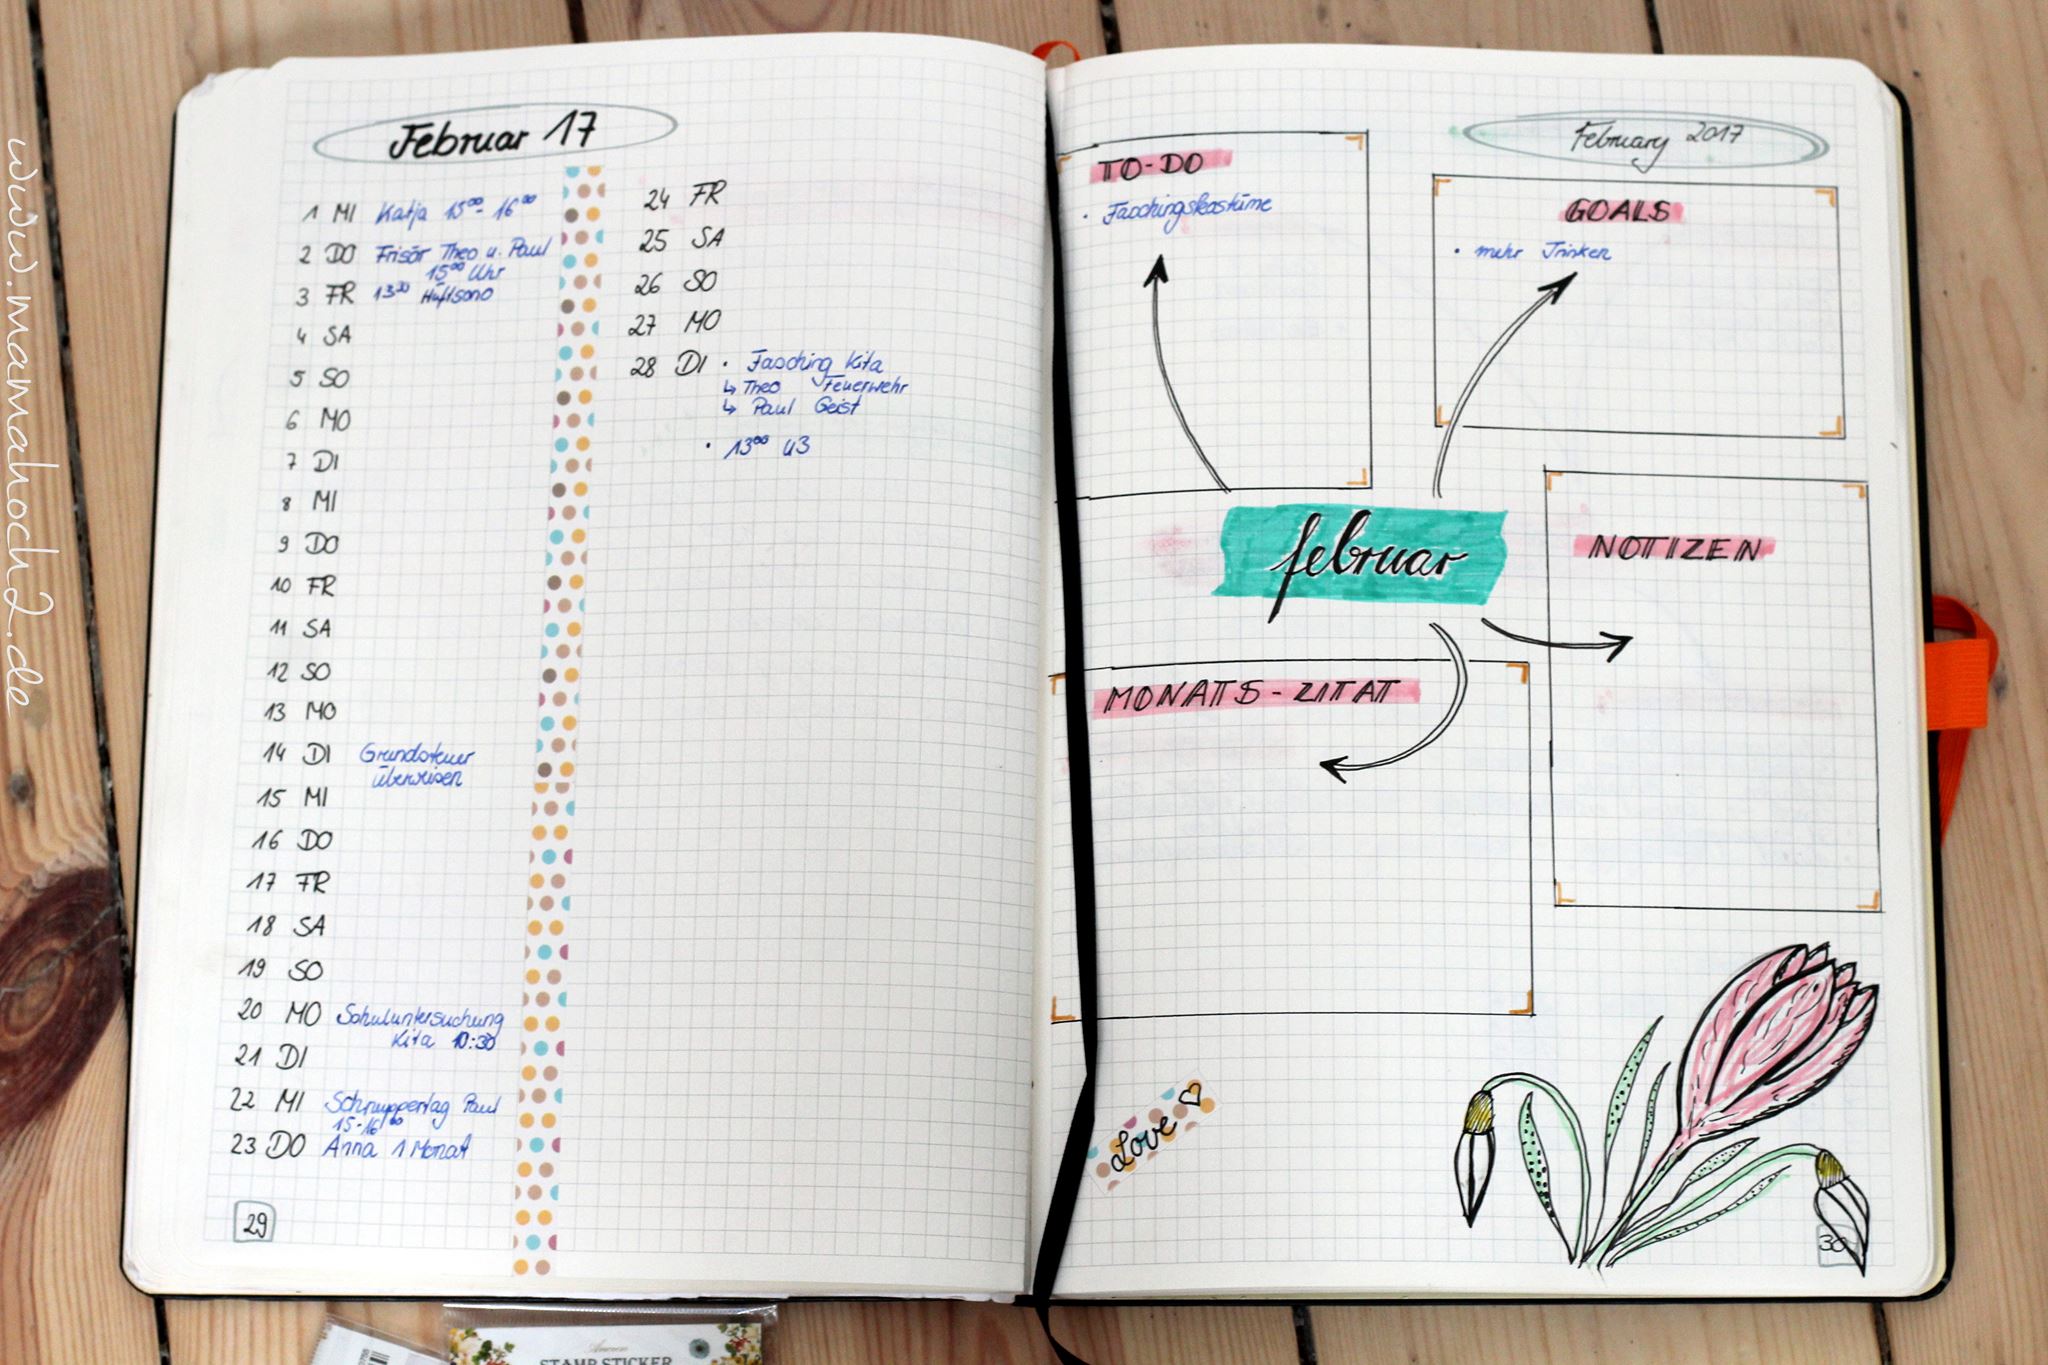 www.mamahoch2.de
Februar 17
1 MI Katja 15⁰⁰ - 16⁰⁰
2 DO Frisör Theo u. Paul
15⁰⁰ Uhr
3 FR 13³⁰ Hüftsono
4 SA
5 SO
6 MO
7 DI
8 MI
9 DO
10 FR
11 SA
12 SO
13 MO
14 DI Grundsteuer
überweisen
15 MI
16 DO
17 FR
18 SA
19 SO
20 MO Schuluntersuchung
Kita 10:30
21 DI
22 MI Schnuppertag Paul
15-16⁰⁰
23 DO Anna 1 Monat
29
24 FR
25 SA
26 SO
27 MO
28 DI • Fasching Kita
↳ Theo Feuerwehr
↳ Paul Geist
• 13⁰⁰ U3
February 2017
TO-DO
• Faschingskostüme
GOALS
• mehr Trinken
februar
NOTIZEN
MONATS-ZITAT
Love
30
STAMP STICKER